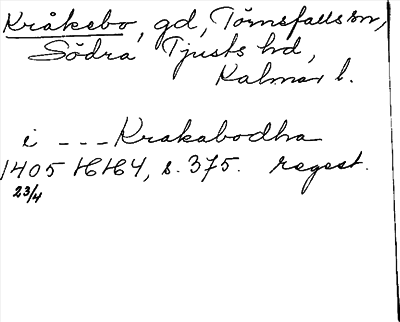 Kråkebo, gd, Törnsfalls sn,
Södra Tjusts hd,
Kalmar l.
i --- Krakabodha
1405 HH4, s. 375. regest.
23/4